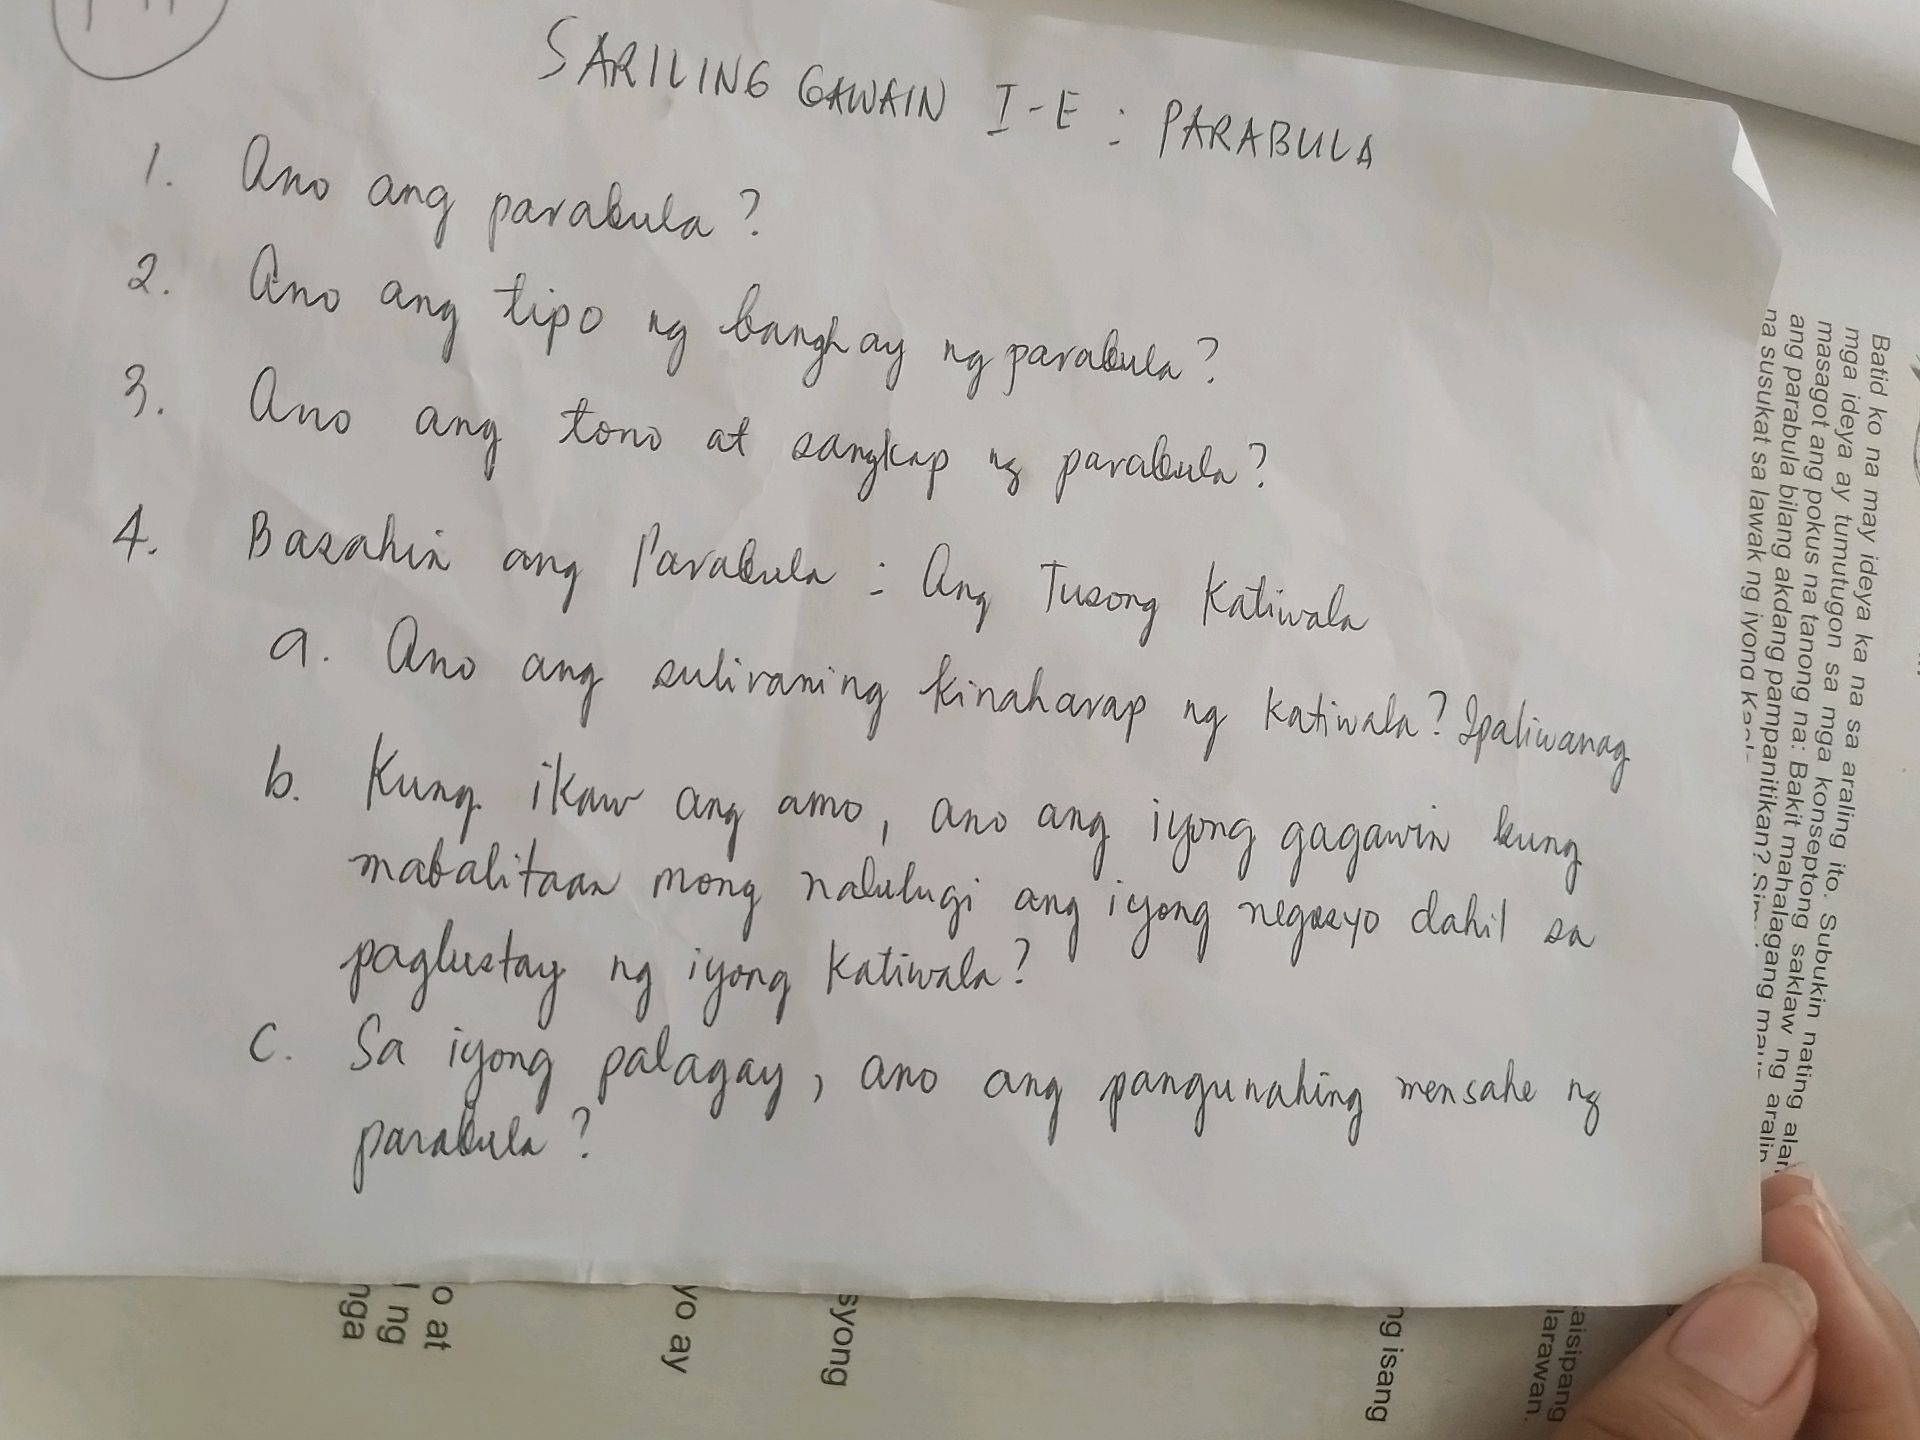 SARILING GAWAIN I-E : PARABULA
1. Ano ang parabula?
2. Ano ang tipo ng banghay ng parabula?
3. Ano ang tono at sangkap ng parabula?
4. Basahin ang Parabula : Ang Tusong Katiwala
a. Ano ang suliraning kinaharap ng katiwala? Ipaliwanag
b. Kung ikaw ang amo, ano ang iyong gagawin kung
mabalitaan mong nalulugi ang iyong negosyo dahil sa
paglustay ng iyong katiwala?
c. Sa iyong palagay, ano ang pangunahing mensahe ng
parabula?
Batid ko na may ideya ka na sa araling ito. Subukin nating
mga ideya ay tumutugon sa mga konseptong saklaw ng
masagot ang pokus na tanong na: Bakit mahalagang
ang parabula bilang akdang pampanitikan?
na susukat sa lawak ng iyong
o at
ng
nga
yo ay
syong
ng isang
aisipang
larawan.